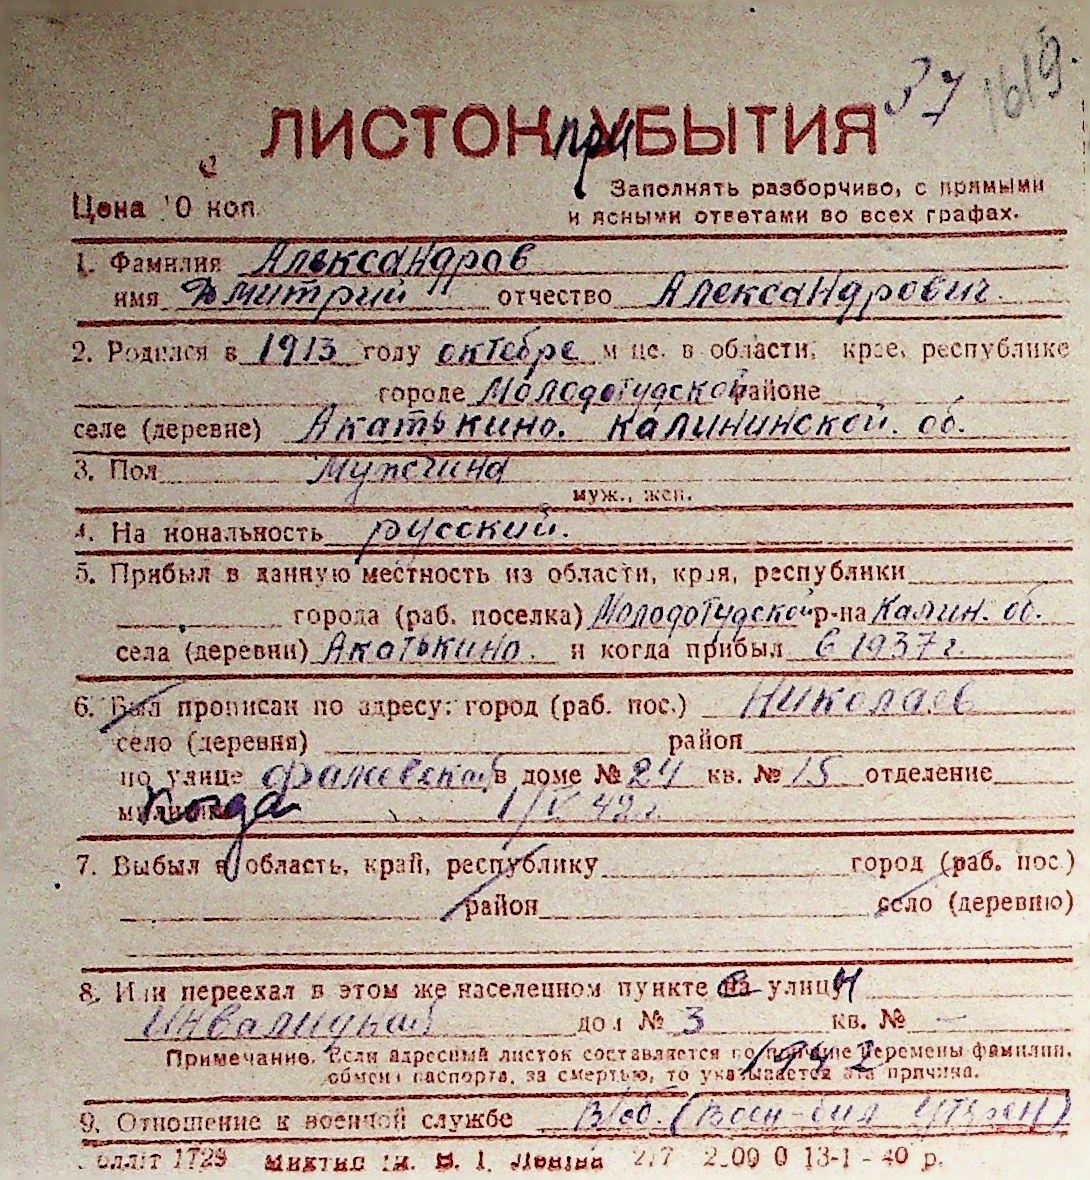 37 1619.
ЛИСТОК при УБЫТИЯ
Цена 10 коп. Заполнять разборчиво, с прямыми
и ясными ответами во всех графах.
1. Фамилия Александров
имя Дмитрий отчество Александрович.
2. Родился в 1913 году октебре м-це. в области, крае, республике
городе Молодотудской районе
селе (деревне) Акатькино. калининской. об.
3. Пол Мужчина
муж., жен.
4. Национальность русский.
5. Прибыл в данную местность из области, края, республики
города (раб. поселка) Молодотудской р-на Калин. об.
села (деревни) Акатькино. и когда прибыл в 1937 г.
6. Был прописан по адресу: город (раб. пос.) Николаев
село (деревня) район
по улице в доме № 24 кв. № 15 отделение
милиции когда 1/V 42 г.
7. Выбыл в область, край, республику город (раб. пос.)
район село (деревню)
8. Или переехал в этом же населенном пункте с улицы
Инвалидной дом № 3 кв. № —
Примечание. Если адресный листок составляется по причине перемены фамилии,
обмена паспорта, за смертью, то указывается эта причина.
1942
9. Отношение к военной службе В/об. (Воен-бил утерен)
1729 Ленина 217 13-1-40 р.